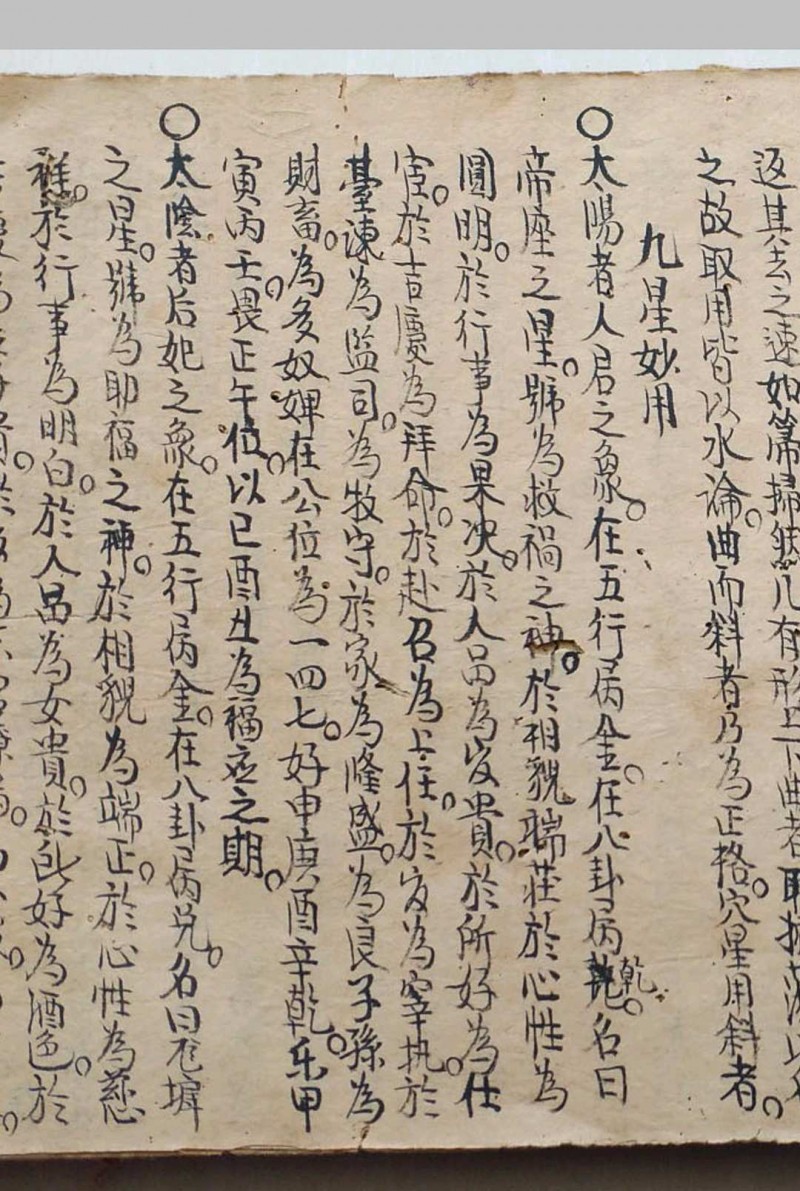 返其去之速如箒掃然凡有形上下曲者取
之故取用皆以水論。曲而斜者乃為正格。穴星用斜者。
九星妙用
○太陽者人君之象。在五行屬金。在八卦屬乾。名曰
帝座之星。號為救禍之神。於相貌為端莊於心性為
圓明。於行事為果决。於人品為男貴。於所好為仕
宦。於吉慶為拜命。於赴召為上任。於官為宰执。於
臺諫為監司。為牧守。於家為隆盛。為良子孫為
財畜。為多奴婢在公位為一四七。好申庚酉辛乾。乐甲
寅丙壬。畏正午位。以巳酉丑為福应之期。
○太陰者后妃之象。在五行屬金。在八卦屬兑。名曰
之星。號為助福之神。於相貌為端正。於心性為慈
祥。於行事為明白。於人品為女貴。於所好為酒色。於